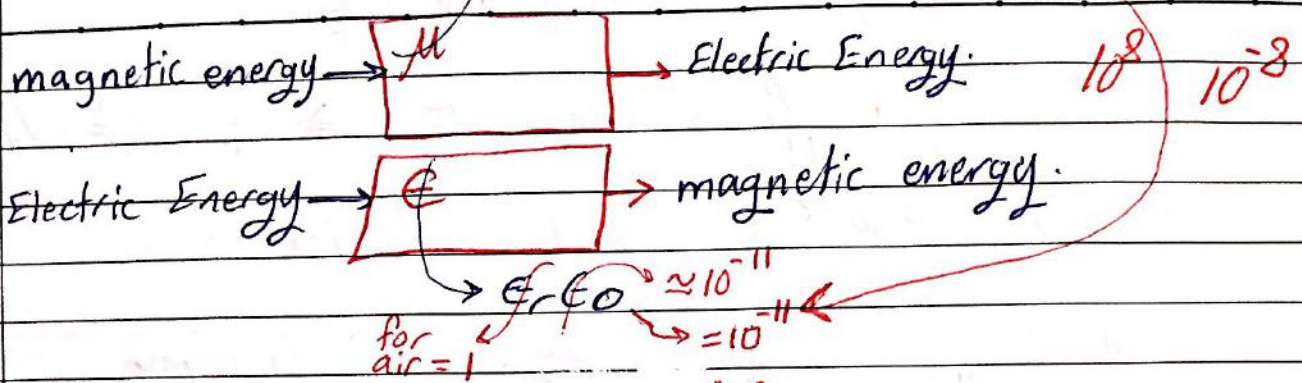 magnetic energy → μ → Electric Energy. 10^8 10^-8
Electric Energy → ϵ → magnetic energy.
→ ϵr ϵ0 ≃ 10^-11
for = 10^-11
air = 1